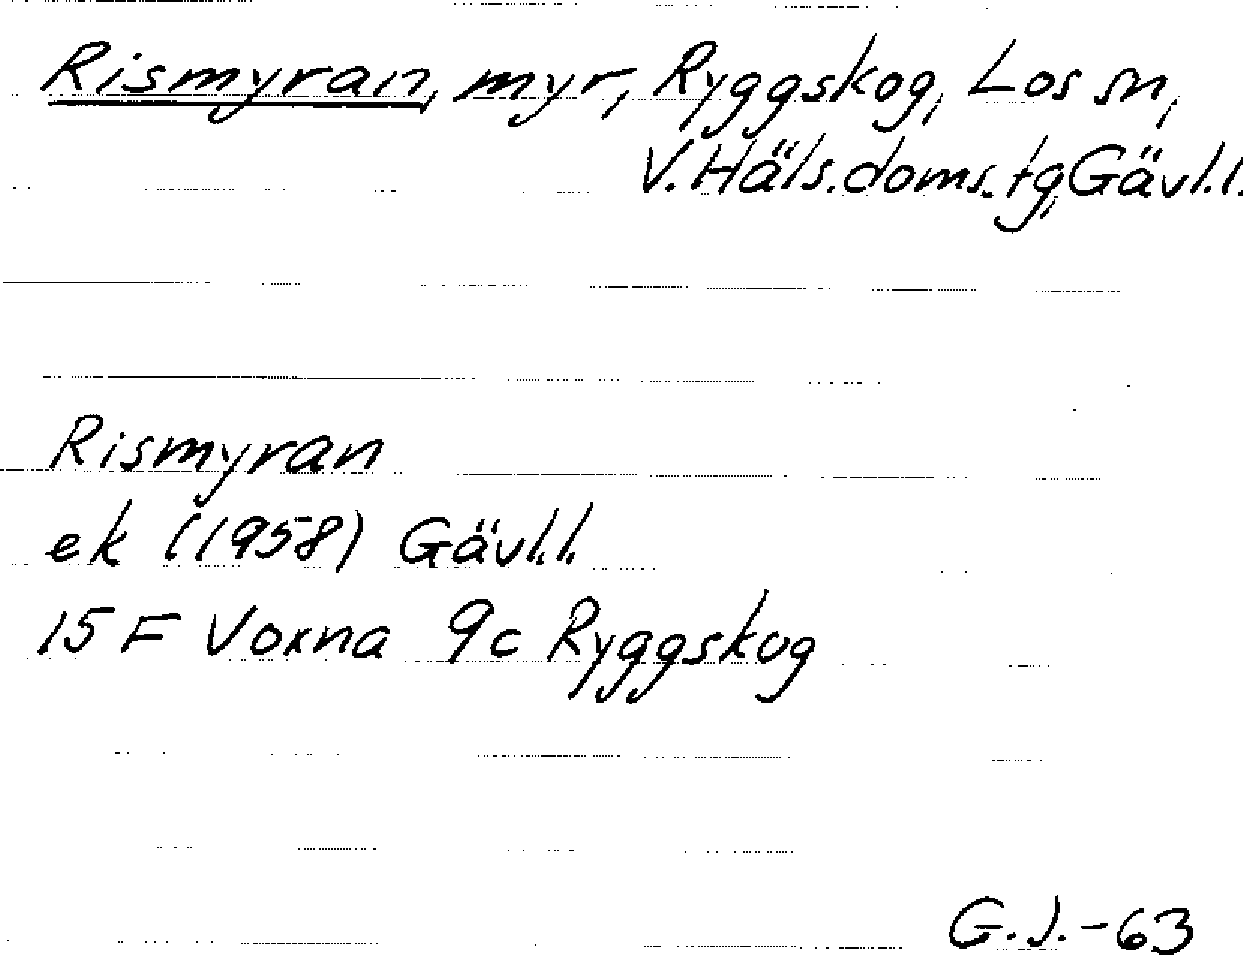 Rismyran, myr, Ryggskog, Los sn,
V. Häls. doms. tg, Gävl.l.
Rismyran
ek (1958) Gävl.l.
15 F Voxna 9c Ryggskog
G.J.-63